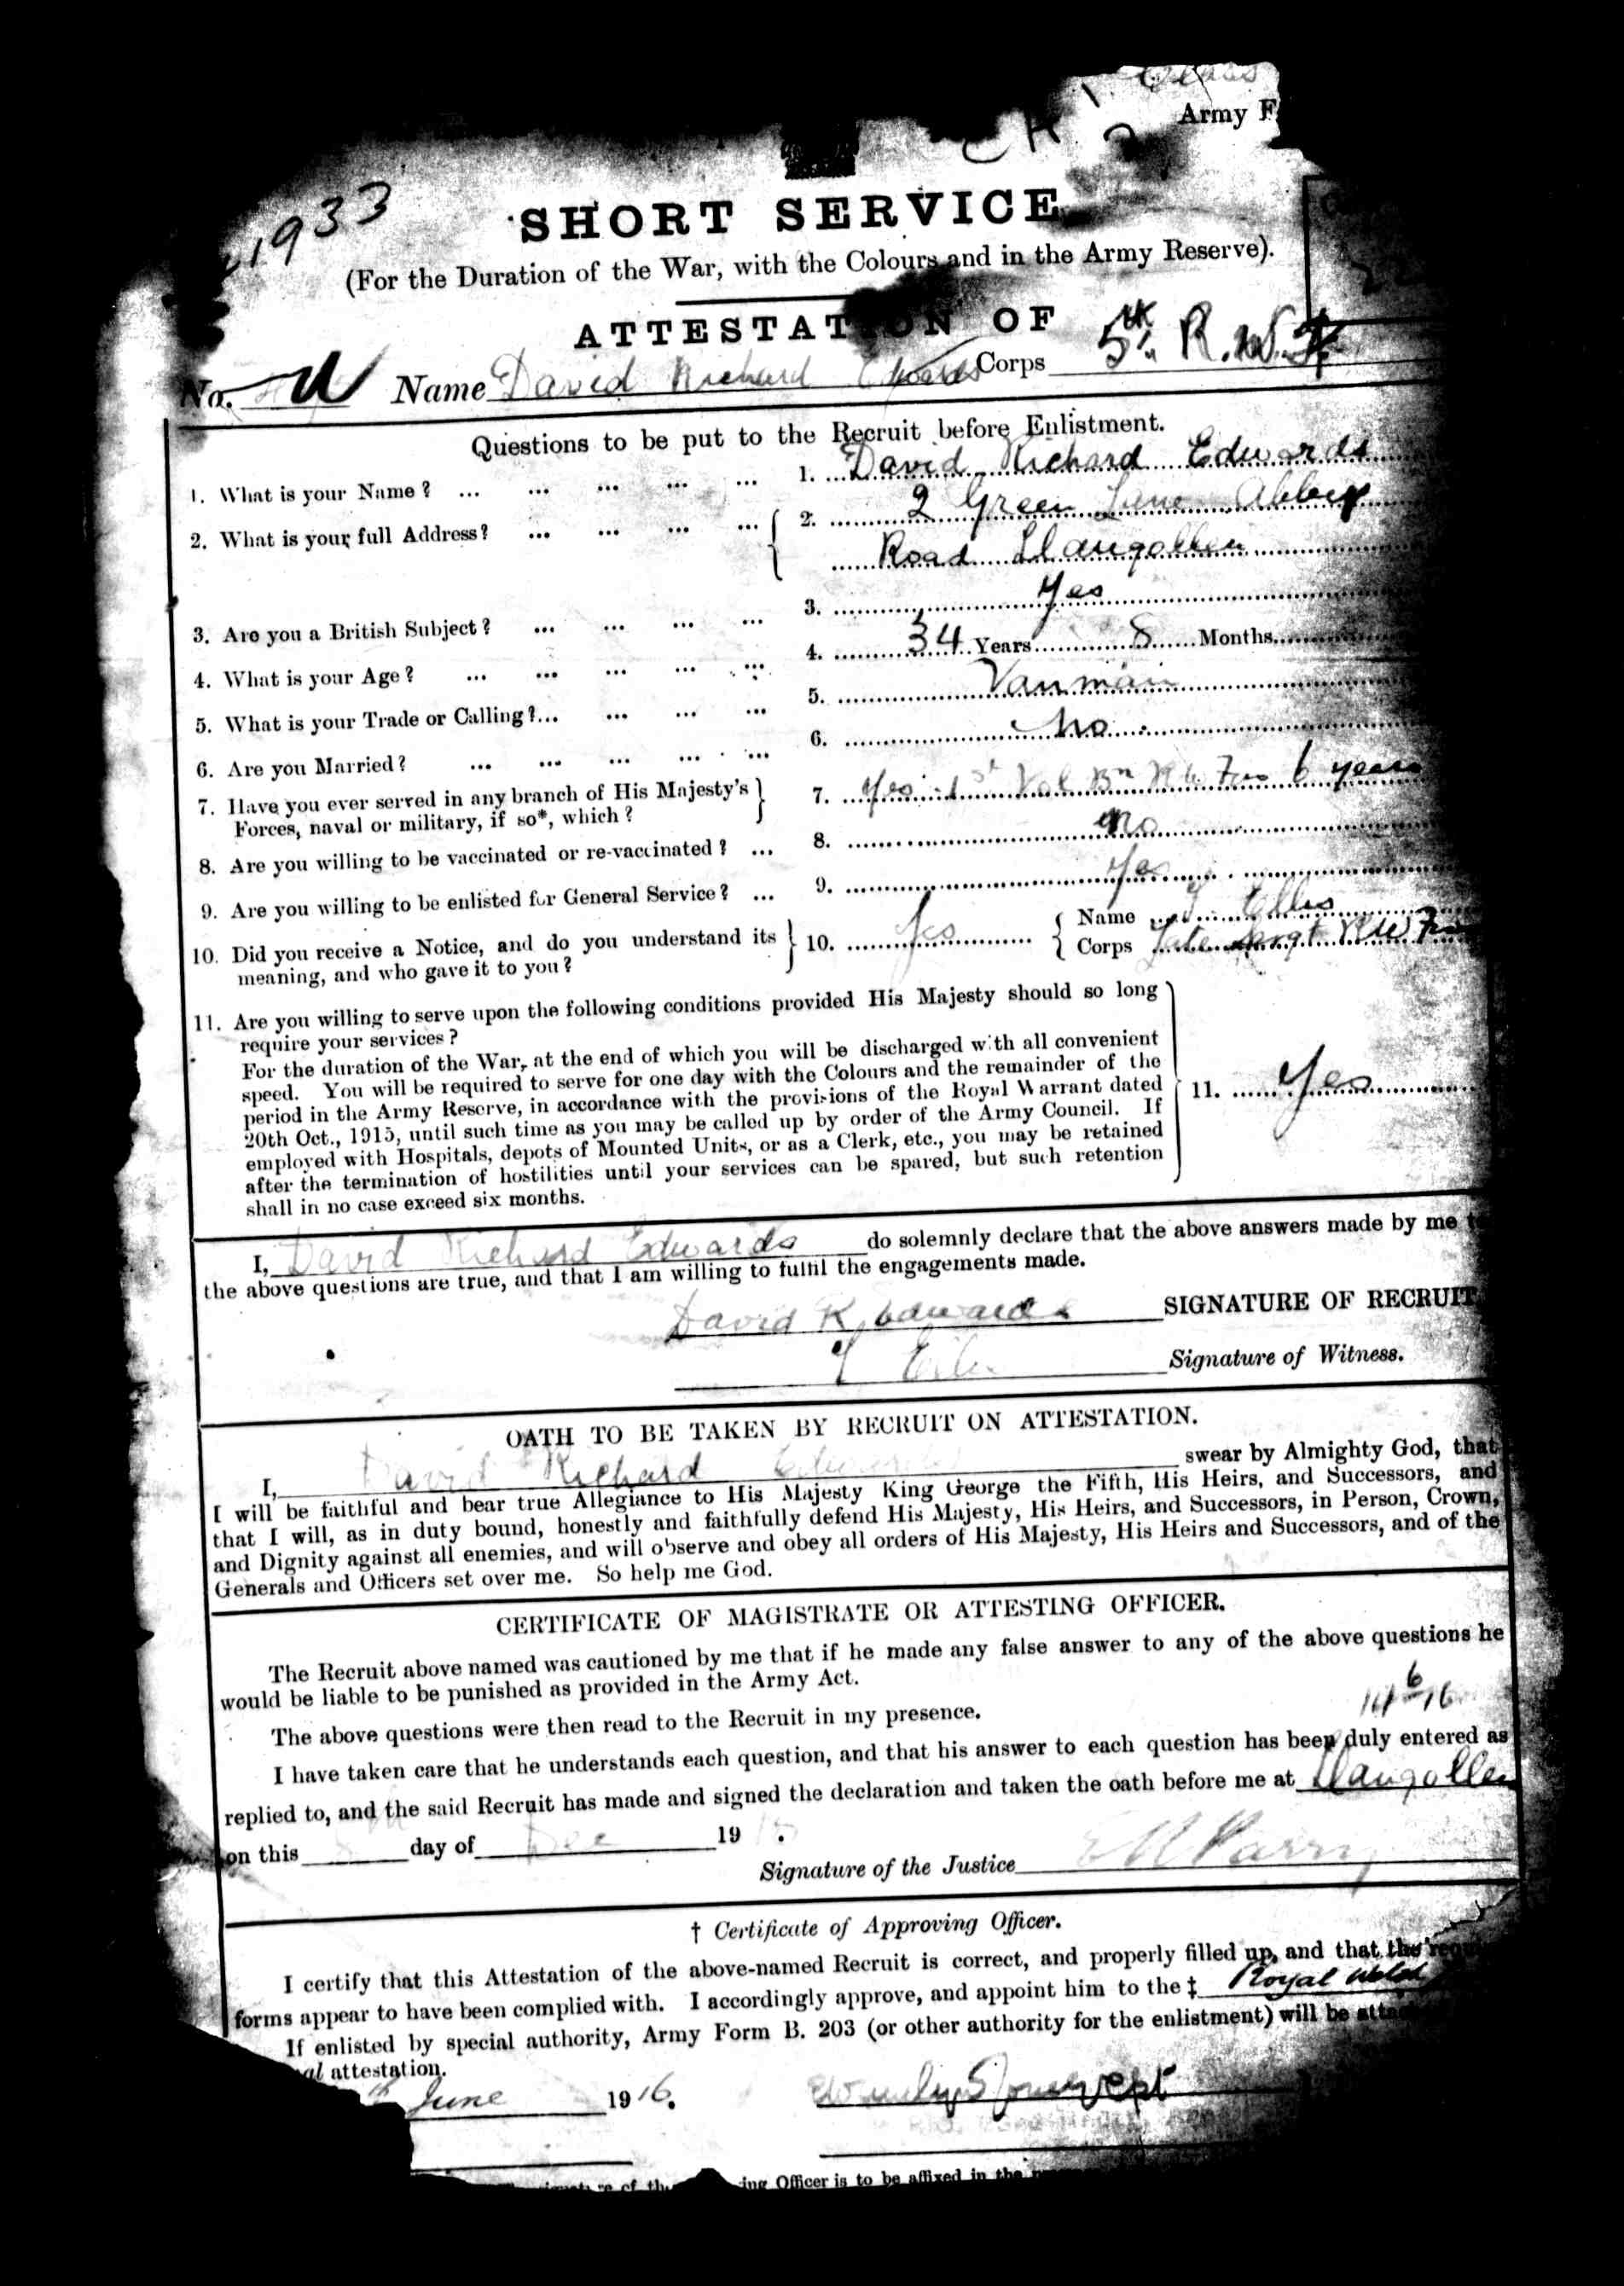 Army F
1933
SHORT SERVICE
(For the Duration of the War, with the Colours and in the Army Reserve).
ATTESTATION OF
No. Name David Richard Edwards Corps 5th R.W.F.
Questions to be put to the Recruit before Enlistment.
1. What is your Name? ... ... ... ... ... 1. David Richard Edwards
2. What is your full Address? ... ... ... ... 2. 2 Green Lane Abbey
Road Llangollen
3. Are you a British Subject? ... ... ... ... 3. Yes
4. What is your Age? ... ... ... ... ... 4. 34 Years 8 Months
5. What is your Trade or Calling?... ... ... ... 5. Vanman
6. Are you Married? ... ... ... ... ... 6. No
7. Have you ever served in any branch of His Majesty's
Forces, naval or military, if so*, which? 7. Yes 1st Vol Bn R W Fus 6 years
8. Are you willing to be vaccinated or re-vaccinated? ... 8. No
9. Are you willing to be enlisted for General Service? ... 9. Yes
10. Did you receive a Notice, and do you understand its
meaning, and who gave it to you? 10. Yes Name Ellis
Corps Late Sergt RW Fus
11. Are you willing to serve upon the following conditions provided His Majesty should so long
require your services?
For the duration of the War, at the end of which you will be discharged with all convenient
speed. You will be required to serve for one day with the Colours and the remainder of the
period in the Army Reserve, in accordance with the provisions of the Royal Warrant dated
20th Oct., 1915, until such time as you may be called up by order of the Army Council. If
employed with Hospitals, depots of Mounted Units, or as a Clerk, etc., you may be retained
after the termination of hostilities until your services can be spared, but such retention
shall in no case exceed six months.
11. Yes
I, David Richard Edwards do solemnly declare that the above answers made by me to
the above questions are true, and that I am willing to fulfil the engagements made.
David R Edwards SIGNATURE OF RECRUIT.
Signature of Witness.
OATH TO BE TAKEN BY RECRUIT ON ATTESTATION.
I, David Richard Edwards swear by Almighty God, that
I will be faithful and bear true Allegiance to His Majesty King George the Fifth, His Heirs, and Successors, and
that I will, as in duty bound, honestly and faithfully defend His Majesty, His Heirs, and Successors, in Person, Crown,
and Dignity against all enemies, and will observe and obey all orders of His Majesty, His Heirs and Successors, and of the
Generals and Officers set over me. So help me God.
CERTIFICATE OF MAGISTRATE OR ATTESTING OFFICER.
The Recruit above named was cautioned by me that if he made any false answer to any of the above questions he
would be liable to be punished as provided in the Army Act.
The above questions were then read to the Recruit in my presence.
14 6/16
I have taken care that he understands each question, and that his answer to each question has been duly entered as
replied to, and the said Recruit has made and signed the declaration and taken the oath before me at Llangollen
on this day of Dec 19 .
Signature of the Justice
† Certificate of Approving Officer.
I certify that this Attestation of the above-named Recruit is correct, and properly filled up, and that the
forms appear to have been complied with. I accordingly approve, and appoint him to the ‡ Royal Welch
If enlisted by special authority, Army Form B. 203 (or other authority for the enlistment) will be
attestation.
June 1916.
Officer is to be affixed in the